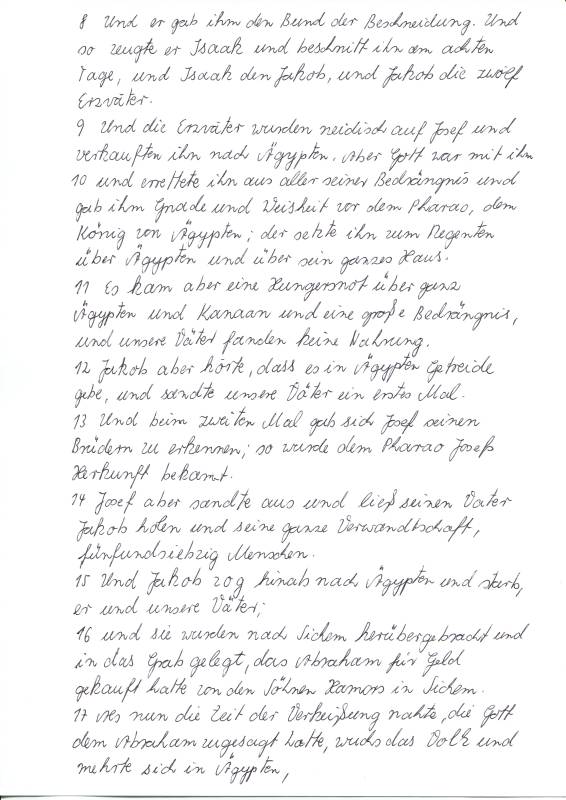 8 Und er gab ihm den Bund der Beschneidung. Und
so zeugte er Isaak und beschnitt ihn am achten
Tage, und Isaak den Jakob, und Jakob die zwölf
Erzväter.
9 Und die Erzväter wurden neidisch auf Josef und
verkauften ihn nach Ägypten. Aber Gott war mit ihm
10 und errettete ihn aus aller seiner Bedrängnis und
gab ihm Gnade und Weisheit vor dem Pharao, dem
König von Ägypten; der setzte ihn zum Regenten
über Ägypten und über sein ganzes Haus.
11 Es kam aber eine Hungersnot über ganz
Ägypten und Kanaan und eine große Bedrängnis,
und unsere Väter fanden keine Nahrung.
12 Jakob aber hörte, dass es in Ägypten Getreide
gebe, und sandte unsere Väter ein erstes Mal.
13 Und beim zweiten Mal gab sich Josef seinen
Brüdern zu erkennen; so wurde dem Pharao Josefs
Herkunft bekannt.
14 Josef aber sandte aus und ließ seinen Vater
Jakob holen und seine ganze Verwandtschaft,
fünfundsiebzig Menschen.
15 Und Jakob zog hinab nach Ägypten und starb,
er und unsere Väter;
16 und sie wurden nach Sichem herübergebracht und
in das Grab gelegt, das Abraham für Geld
gekauft hatte von den Söhnen Hamors in Sichem.
17 Als nun die Zeit der Verheißung nahte, die Gott
dem Abraham zugesagt hatte, wuchs das Volk und
mehrte sich in Ägypten,